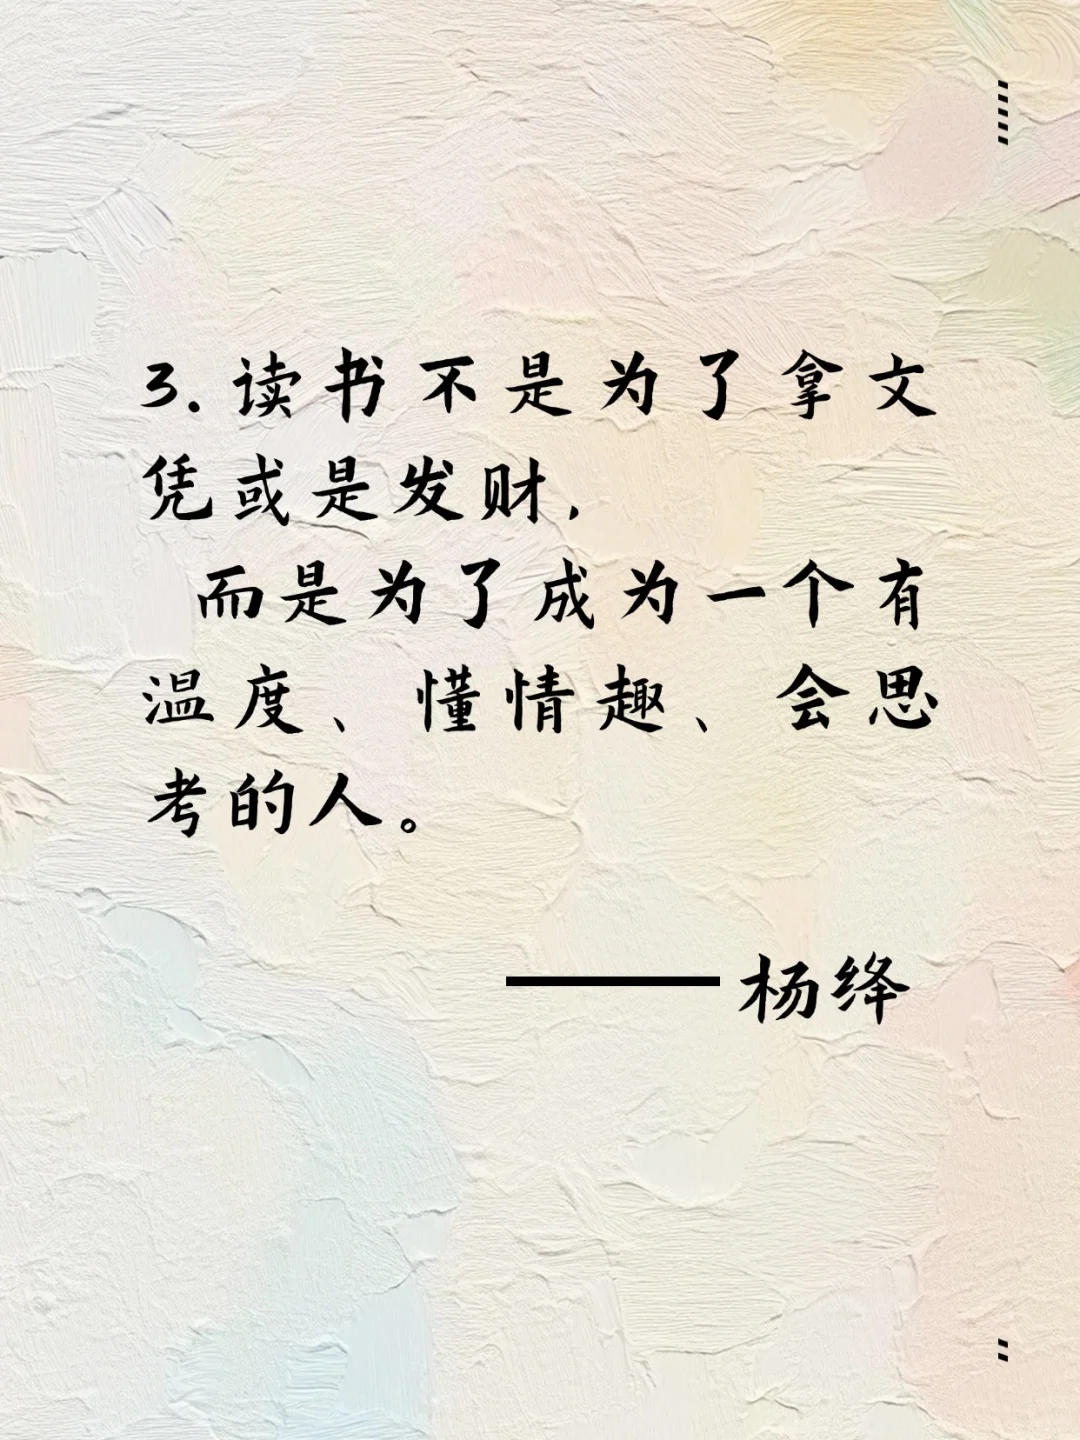 3.读书不是为了拿文
凭或是发财,
而是为了成为一个有
温度、懂情趣、会思
考的人。
——杨绛